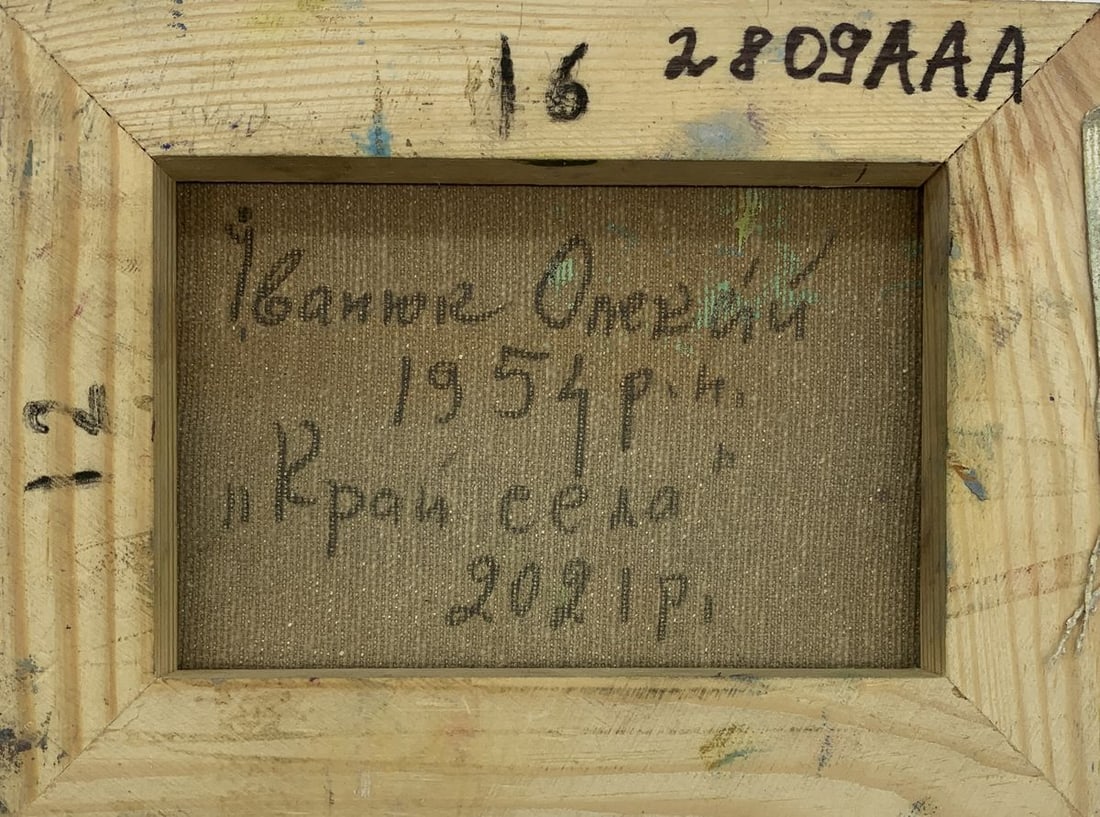 16 2809AAA
Іванюк Олексій
1954 р.н.
12
„Край села"
2021 р.